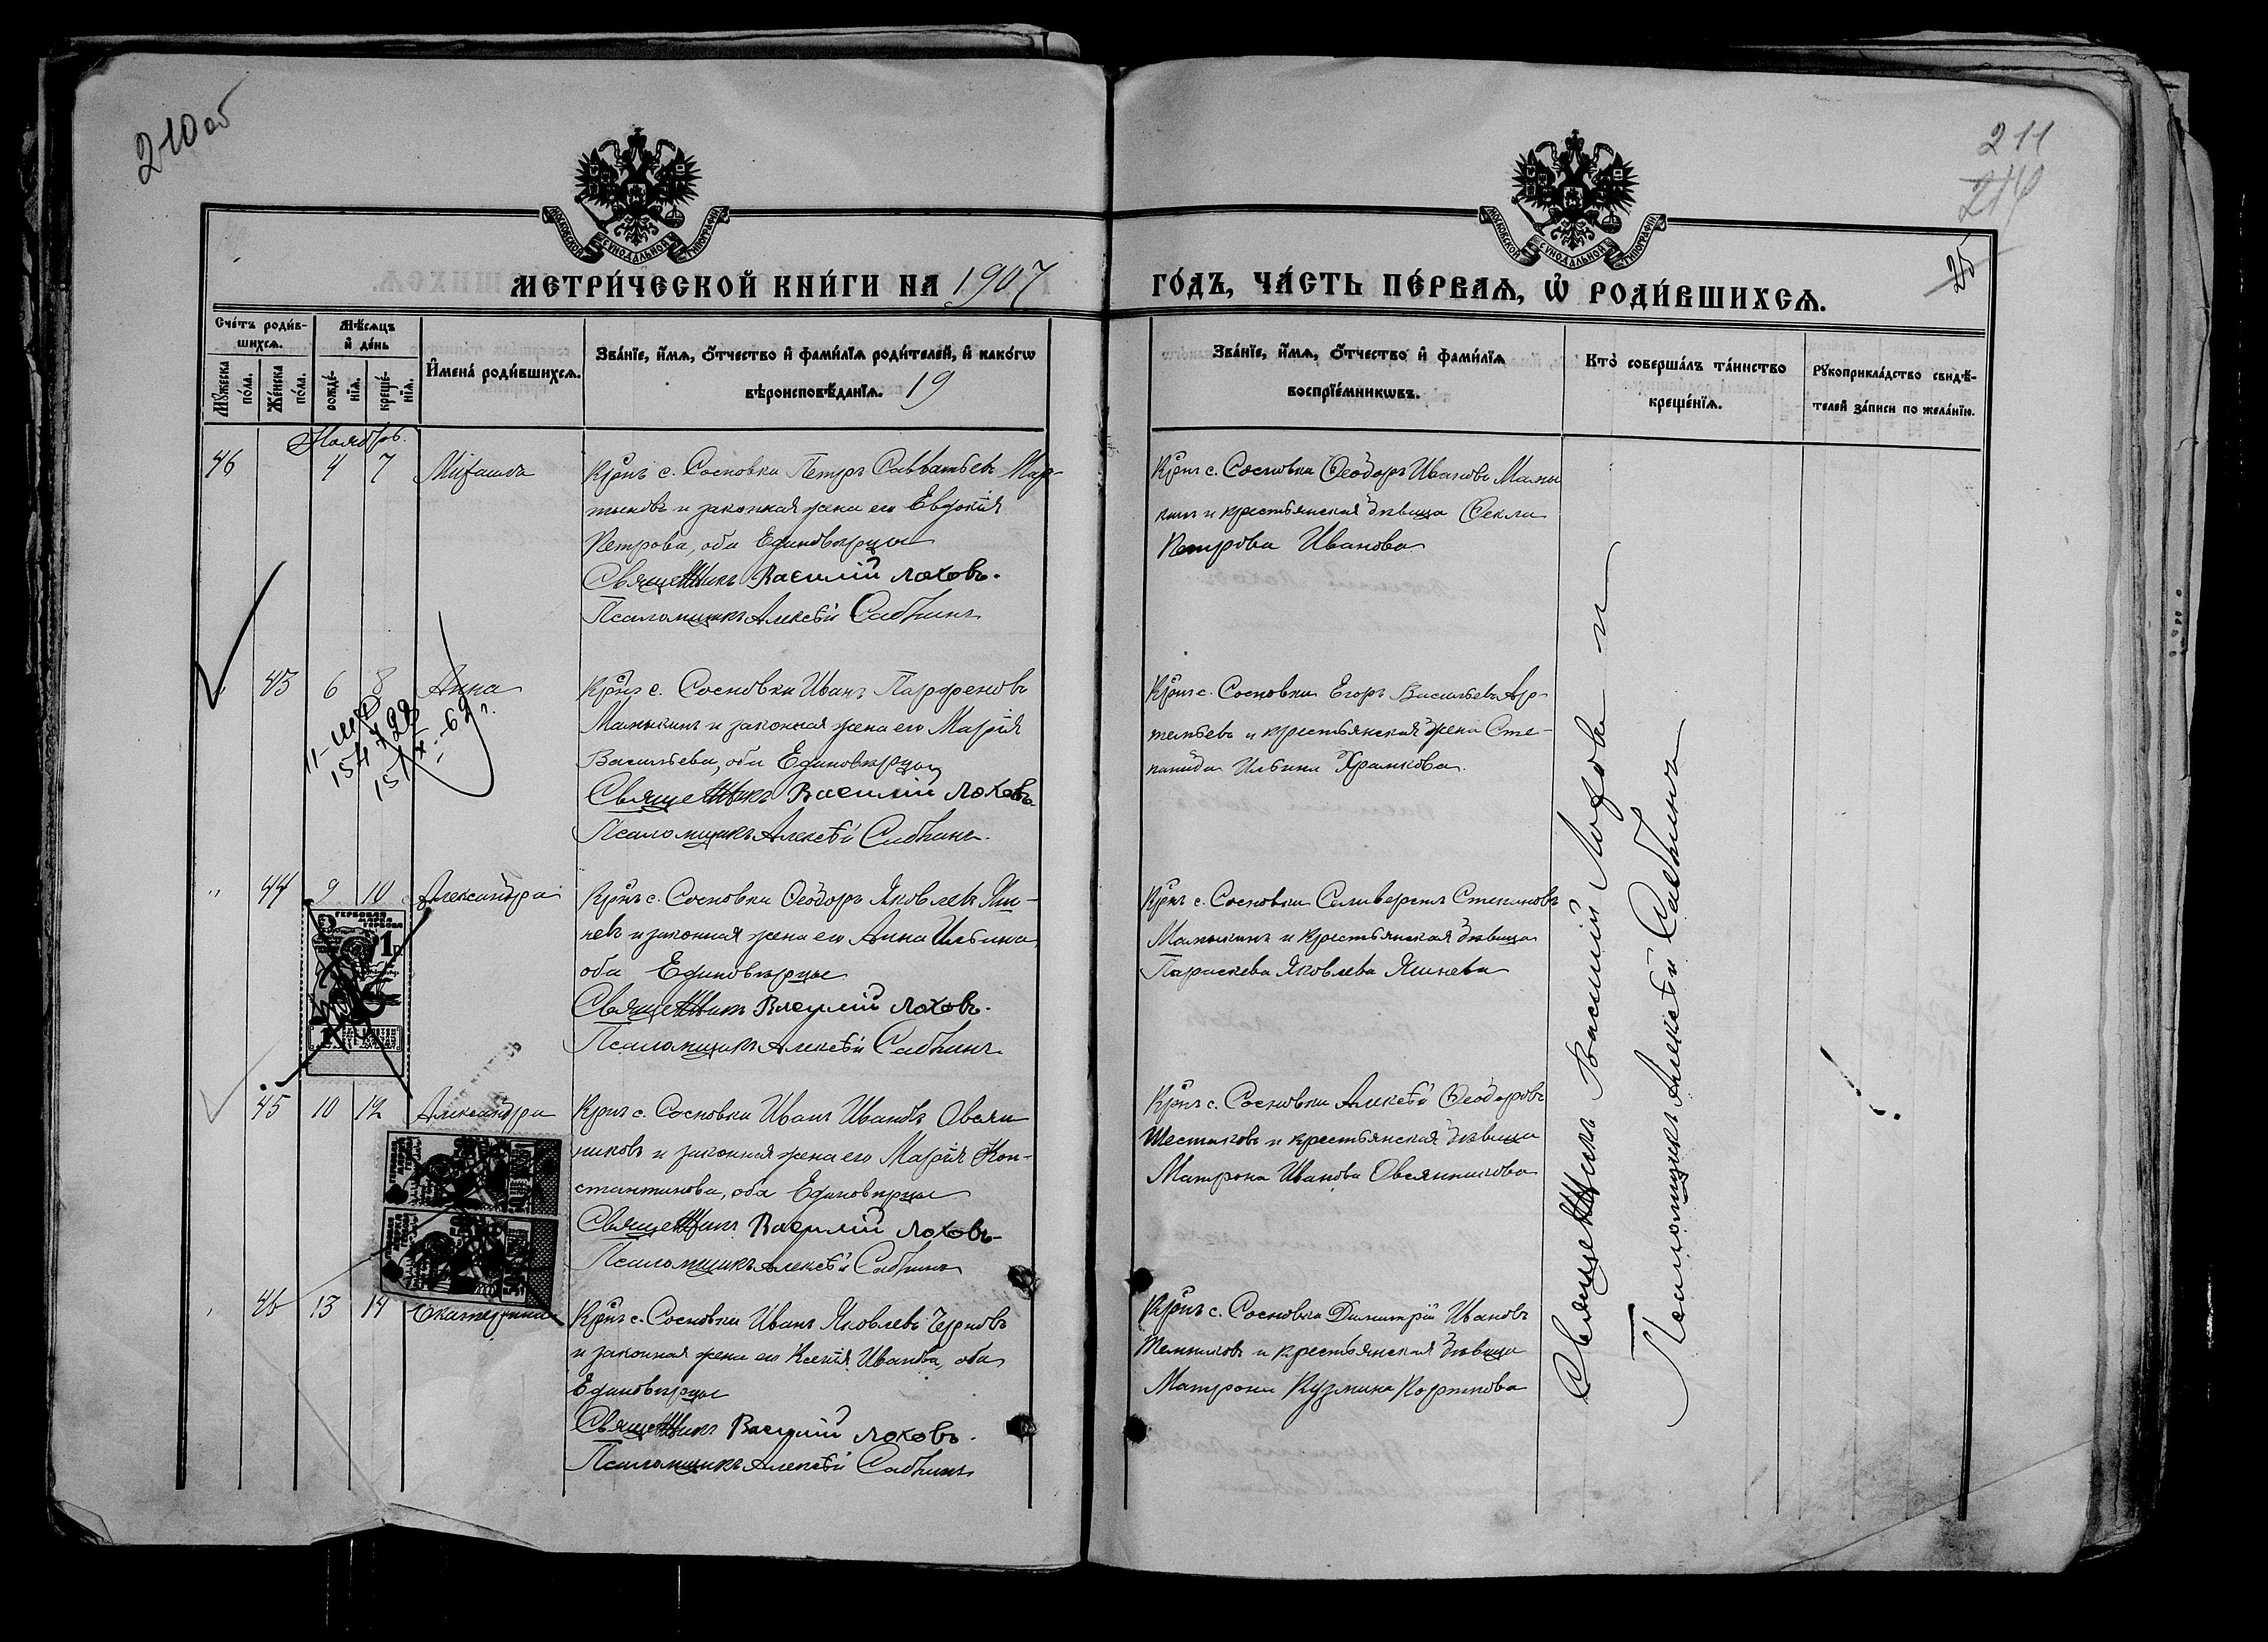 210 об
211
214
25
МОСКОВСКОЙ СΥНОДАЛЬНОЙ ТИПОГРАФІИ
МОСКОВСКОЙ СΥНОДАЛЬНОЙ ТИПОГРАФІИ
МЕТРИ́ЧЕСКОЙ КНИ́ГИ НА 1907
ГО́ДЪ, ЧА́СТЬ ПЕ́РВАѦ, Ѡ҆ РОДИ́ВШИХСѦ.
Сче́тъ роди́в-
шихсѧ.
Мꙋ́жеска по́ла.
Же́нска по́ла.
Мѣ́сѧцъ
и҆ де́нь
рожде́-
нїѧ.
креще́-
нїѧ.
И҆мена̀ роди́вшихсѧ.
Зва́нїе, и҆́мѧ, ѻ҆́тчество и҆ фами́лїѧ роди́телей, и҆ како́гѡ
вѣроисповѣ́данїѧ. 19
Зва́нїе, и҆́мѧ, ѻ҆́тчество и҆ фами́лїѧ
воспрїе́мникѡвъ.
Кто̀ соверша́лъ та́инство
креще́нїѧ.
Рꙋкоприкла́дство свидѣ́-
телей за́писи по жела́нїю.
Ноябрь.
46 4 7 Михаилъ
Крнъ с. Сосновки Петръ Савватьевъ Мар-
тыновъ и законная жена его Евдокія
Петрова, оба Единовѣрцы
Священникъ Василій Лоховъ.
Псаломщикъ Алексѣй Сабѣинъ
Крнъ с. Сосновки Ѳеодоръ Ивановъ Маны
кинъ и крестьянская дѣвица Ѳекла
Петрова Иванова
43 6 8 Анна
Крнъ с. Сосновки Иванъ Парфеновъ
Манынинъ и законная жена его Марія
Васильева, оба Единовѣрцы
Священникъ Василій Лоховъ
Псаломщикъ Алексѣй Сабѣинъ.
Крнъ с. Сосновки Егоръ Васильевъ Ар-
темьевъ и крестьянская жена Сте-
панида Ильина Храмкова.
" 44 9 10 Александра
Крнъ с. Сосновки Ѳеодоръ Яковлевъ Яш-
невъ и законная жена его Анна Ильина
оба Единовѣрцы
Священникъ Василій Лоховъ.
Псаломщикъ Алексѣй Сабѣинъ
Крнъ с. Сосновки Селиверстъ Степановъ
Манынинъ и крестьянская дѣвица
Параскева Яковлева Яшнева
ГЕРБОВАЯ
МАРКА
45 10 12 Александра
Крнъ с. Сосновки Иванъ Ивановъ Овсян
никовъ и законная жена его Марія Кон-
стантинова, оба Единовѣрцы
Священникъ Василій Лоховъ
Псаломщикъ Алексѣй Сабѣинъ
Крнъ с. Сосновки Алексѣй Ѳеодоровъ
Шестаковъ и крестьянская дѣвица
Матрона Иванова Овсянникова
46 13 14 Екатерина
Крнъ с. Сосновки Иванъ Яковлевъ Черновъ
и законная жена его Ксенія Иванова, оба
Единовѣрцы
Священникъ Василій Лоховъ.
Псаломщикъ Алексѣй Сабѣинъ
Крнъ с. Сосновки Димитрій Ивановъ
Темниковъ и крестьянская дѣвица
Матрона Кузмина
Священникъ Василій Лоховъ и
Псаломщикъ Алексѣй Сабѣинъ